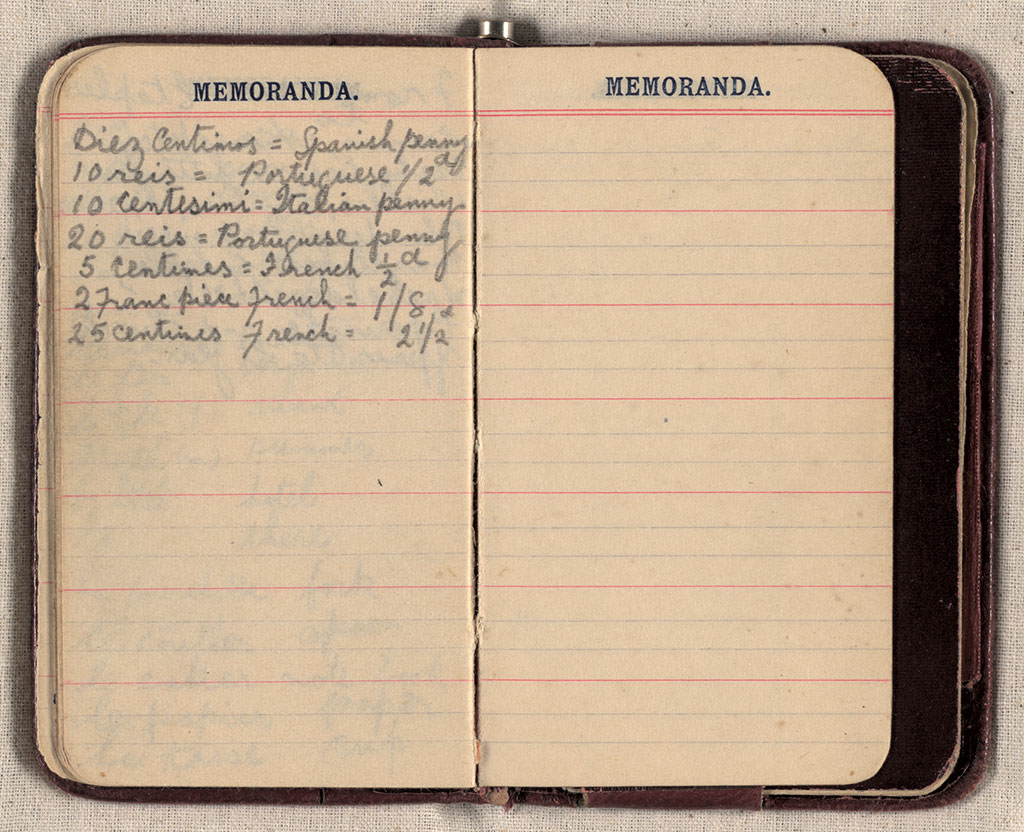 MEMORANDA.
Diez Centimos = Spanish penny
10 reis = Portuguese 1/2 d
10 Centesimi = Italian penny
20 reis = Portuguese penny
5 Centimes = French 1/2 d
2 Franc piece French = 1/8 d
25 centimes French = 2 1/2 d
MEMORANDA.